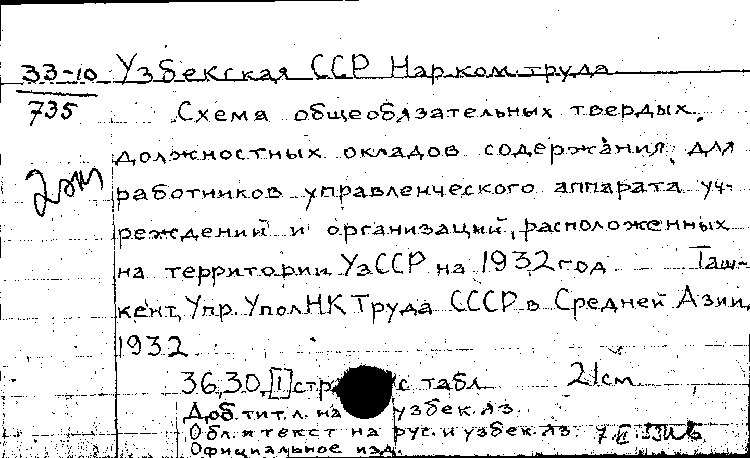 33-10 Узбекская ССР Нар.ком.труда
735
Схема общеобязательных твердых
должностных окладов содержания для
работников управленческого аппарата уч-
реждений и организаций, расположенных
на территории УзССР на 1932 год Таш-
кент, Упр. Упол НК Труда СССР в Средней Азии,
1932
36,30,[1] стр с табл 21см
Доб. тит. л. на узбек. яз.
Обл. и текст на рус. и узбек. яз.
Официальное изд.